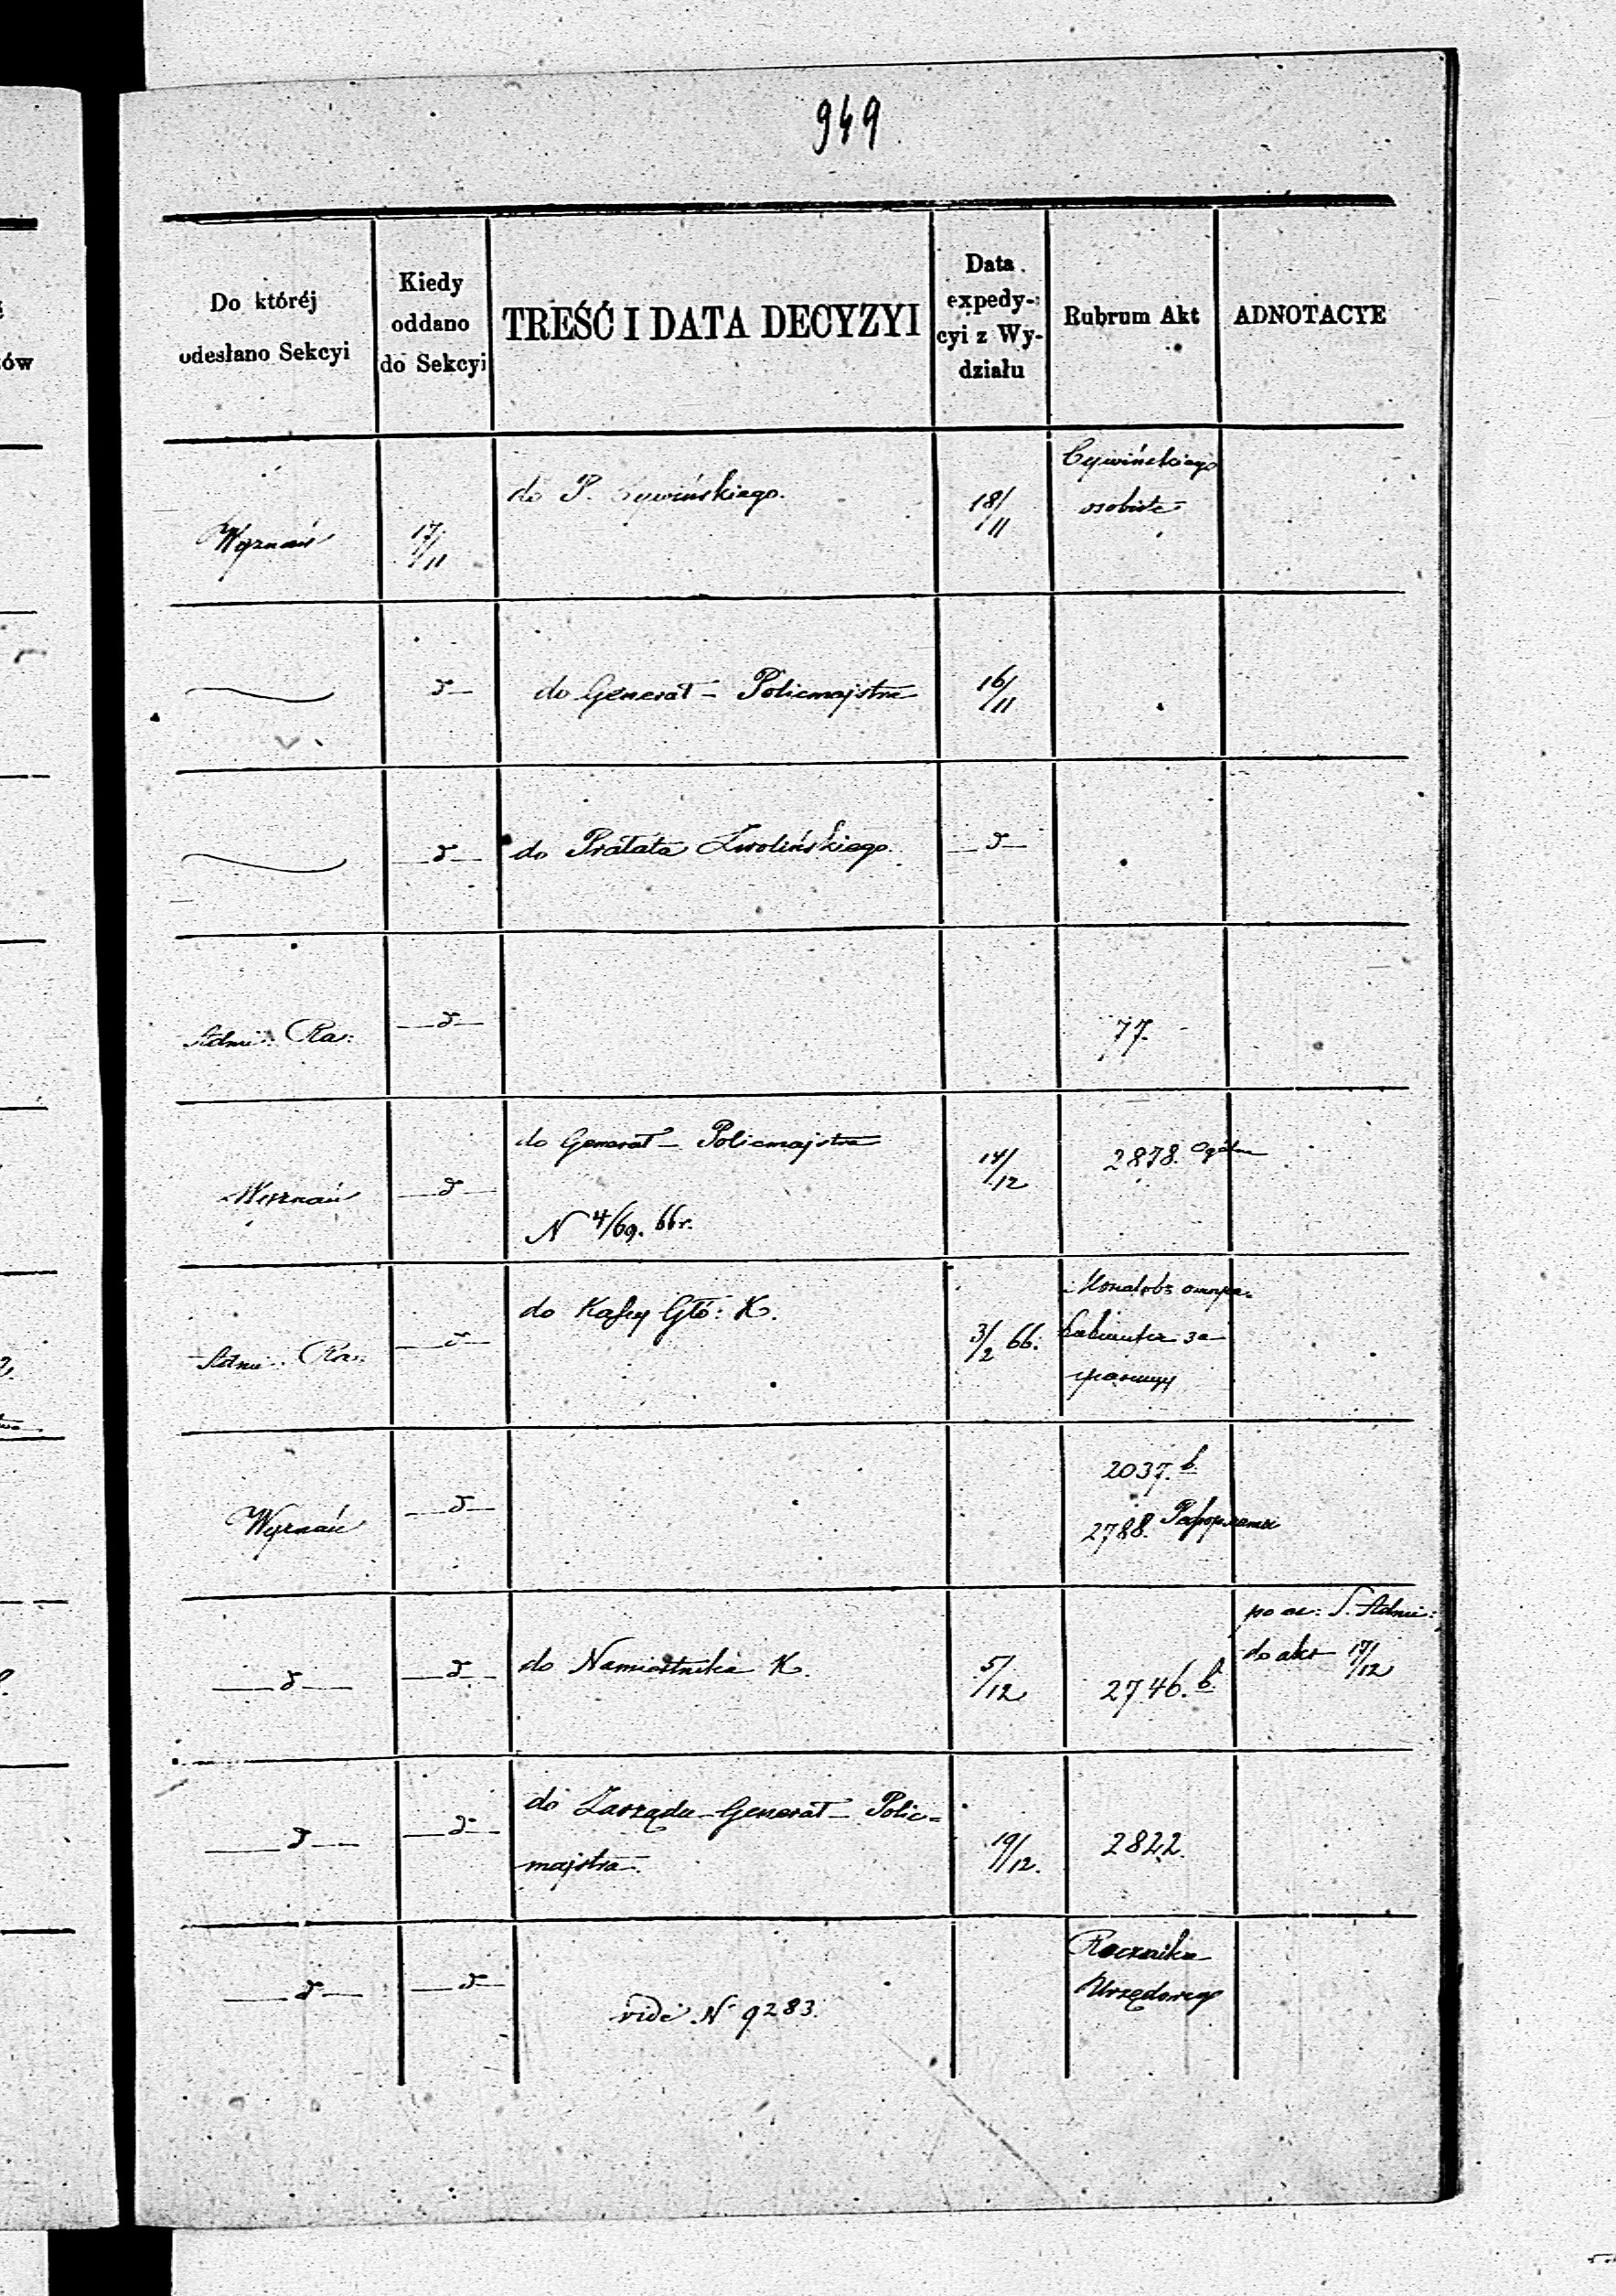 949
Do któréj
odesłano Sekcyi
Kiedy
oddano
do Sekcyi
TREŚĆ I DATA DECYZYI
Data
expedy-
cyi z Wy-
działu
Rubrum Akt
ADNOTACYE
Wyznań
17/11
do P. Cywińskiego.
18/11
Cywińskiego
osobiste
d
do Generał-Policmajstra
16/11
d
do Prałata Zwolińskiego.
d
Admi: Ra:
d
77.
Wyznań
d
do Generał-Policmajstra
N 4/69. 66r.
14/12
2878. Ogólne
Admi: Ra:
d
do Kassy Głó: K.
3/2 66.
за
границу
Wyznań
d
2037. b.
2788.
d
d
do Namiestnika K.
5/12
2746. b.
po ex: S. Admi:
do akt 17/12
d
d
do Zarządu Generał-Polic=
majstra.
19/12.
2822.
d
d
vide N 9283.
Rocznika
Urzędowego